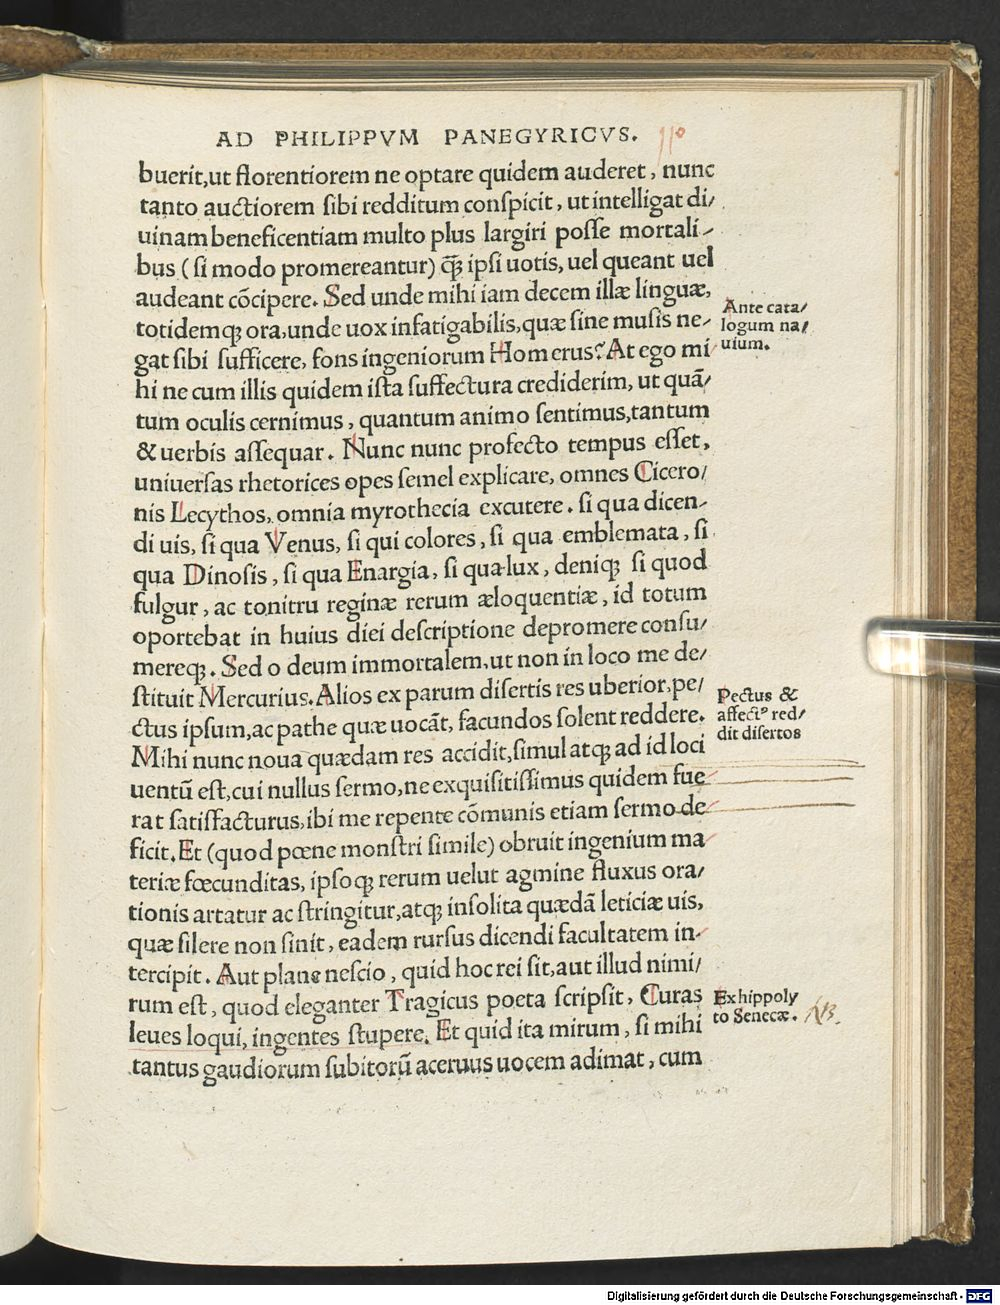 AD PHILIPPVM PANEGYRICVS. 110
buerit,ut florentiorem ne optare quidem auderet, nunc
tanto auctiorem ſibi redditum conſpicit, ut intelligat di/
uinam beneficentiam multo plus largiri poſſe mortali-
bus (ſi modo promereantur) q̄ꝫ ipſi uotis, uel queant uel
audeant cōcipere. Sed unde mihi iam decem illæ linguæ,
totidemqꝫ ora,unde uox infatigabilis,quæ ſine muſis ne-
gat ſibi ſufficere, fons ingeniorum Homerus? At ego mi
hi ne cum illis quidem iſta ſuffectura crediderim, ut quā/
tum oculis cernimus, quantum animo ſentimus,tantum
& uerbis aſſequar. Nunc nunc profecto tempus eſſet,
uniuerſas rhetorices opes ſemel explicare, omnes Cicero/
nis Lecythos, omnia myrothecia excutere. ſi qua dicen-
di uis, ſi qua Venus, ſi qui colores, ſi qua emblemata, ſi
qua Dinoſis, ſi qua Enargia, ſi qua lux, deniqꝫ ſi quod
fulgur, ac tonitru reginæ rerum æloquentiæ, id totum
oportebat in huius diei deſcriptione depromere conſu/
mereqꝫ. Sed o deum immortalem,ut non in loco me de/
ſtituit Mercurius. Alios ex parum diſertis res uberior,pe/
ctus ipſum,ac pathe quæ uocāt, facundos ſolent reddere.
Mihi nunc noua quædam res accidit,ſimul atqꝫ ad id loci
uentū eſt,cui nullus ſermo,ne exquiſitiſſimus quidem fue
rat ſatiſfacturus,ibi me repente cōmunis etiam ſermo de
ficit.Et (quod pœne monſtri ſimile) obruit ingenium ma
teriæ fœcunditas, ipſoqꝫ rerum uelut agmine fluxus ora/
tionis artatur ac ſtringitur,atqꝫ inſolita quædā leticiæ uis,
quæ ſilere non ſinit, eadem rurſus dicendi facultatem in-
tercipit. Aut plane neſcio, quid hoc rei ſit,aut illud nimi/
rum eſt, quod eleganter Tragicus poeta ſcripſit, Curas
leues loqui, ingentes ſtupere. Et quid ita mirum, ſi mihi
tantus gaudiorum ſubitorū aceruus uocem adimat, cum
Ante cata/
logum na/
uium.
Pectus &
affectꝰ red/
dit diſertos
Ex hippoly
to Senecæ.
NB.
Digitalisierung gefördert durch die Deutsche Forschungsgemeinschaft - DFG